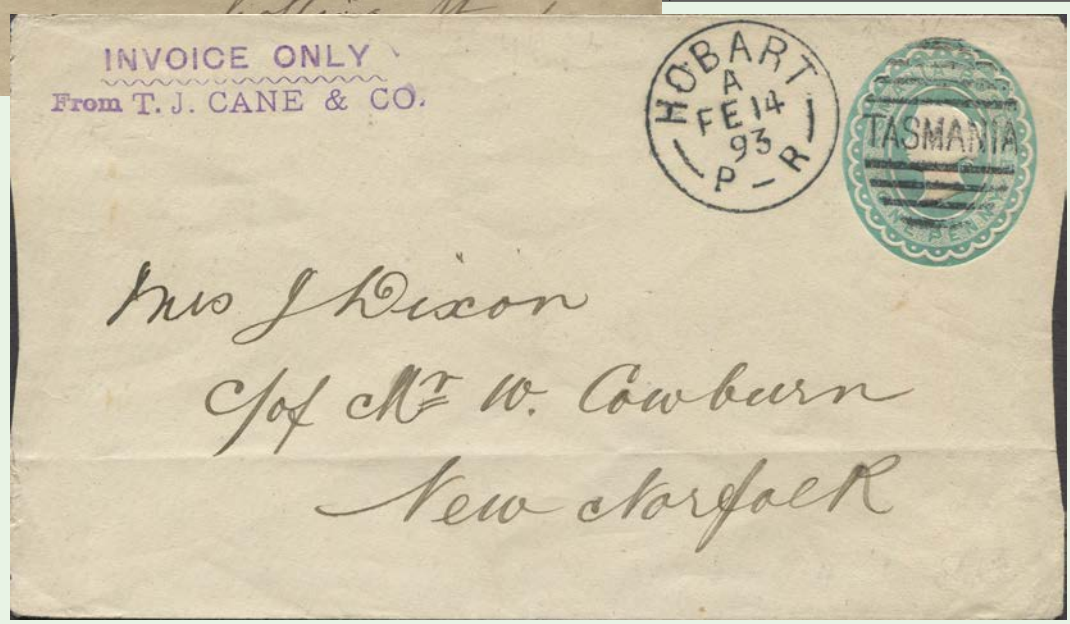 INVOICE ONLY
From T. J. CANE & CO.
HOBART
A
FE 14
93
P - R
TASMANIA
ONE PENNY
Mrs J Dixon
c/of Mr W. Cowburn
New Norfolk